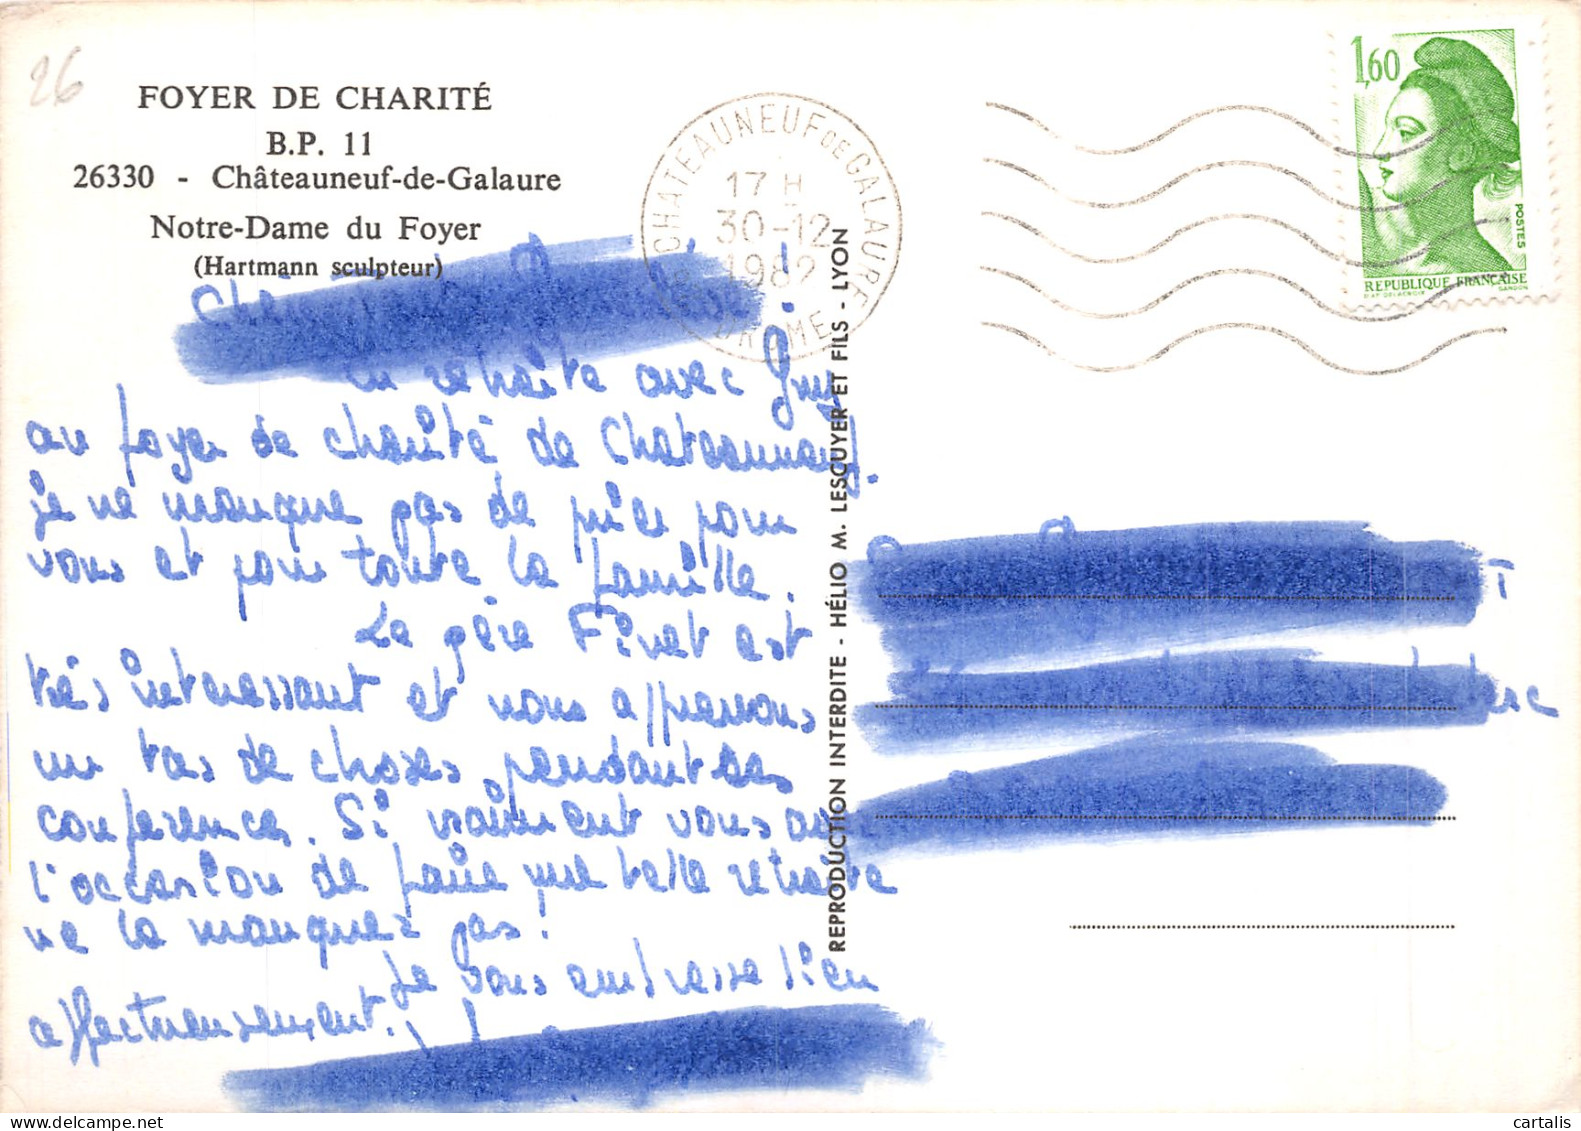 26
FOYER DE CHARITÉ
B.P. 11
26330 - Châteauneuf-de-Galaure
Notre-Dame du Foyer
(Hartmann sculpteur)
CHATEAUNEUF DE GALAURE
17 H
30-12
1982
DROME
1,60
POSTES
REPUBLIQUE FRANÇAISE
D'AP. DELACROIX GANDON
En retraite avec Guy
au foyer de charité de Chateauneuf.
je ne manque pas de prier pour
vous et pour toute la famille.
Le père Finet est
très interessant et nous apprenons
un tas de choses pendant ses
conferences. Si vraiment vous avez
l'occasion de faire une telle retraite
ne la manquez pas!
Je vous embrasse bien
affectueusement.
REPRODUCTION INTERDITE - HÉLIO M. LESCUYER ET FILS - LYON
cartalis delcampe.net